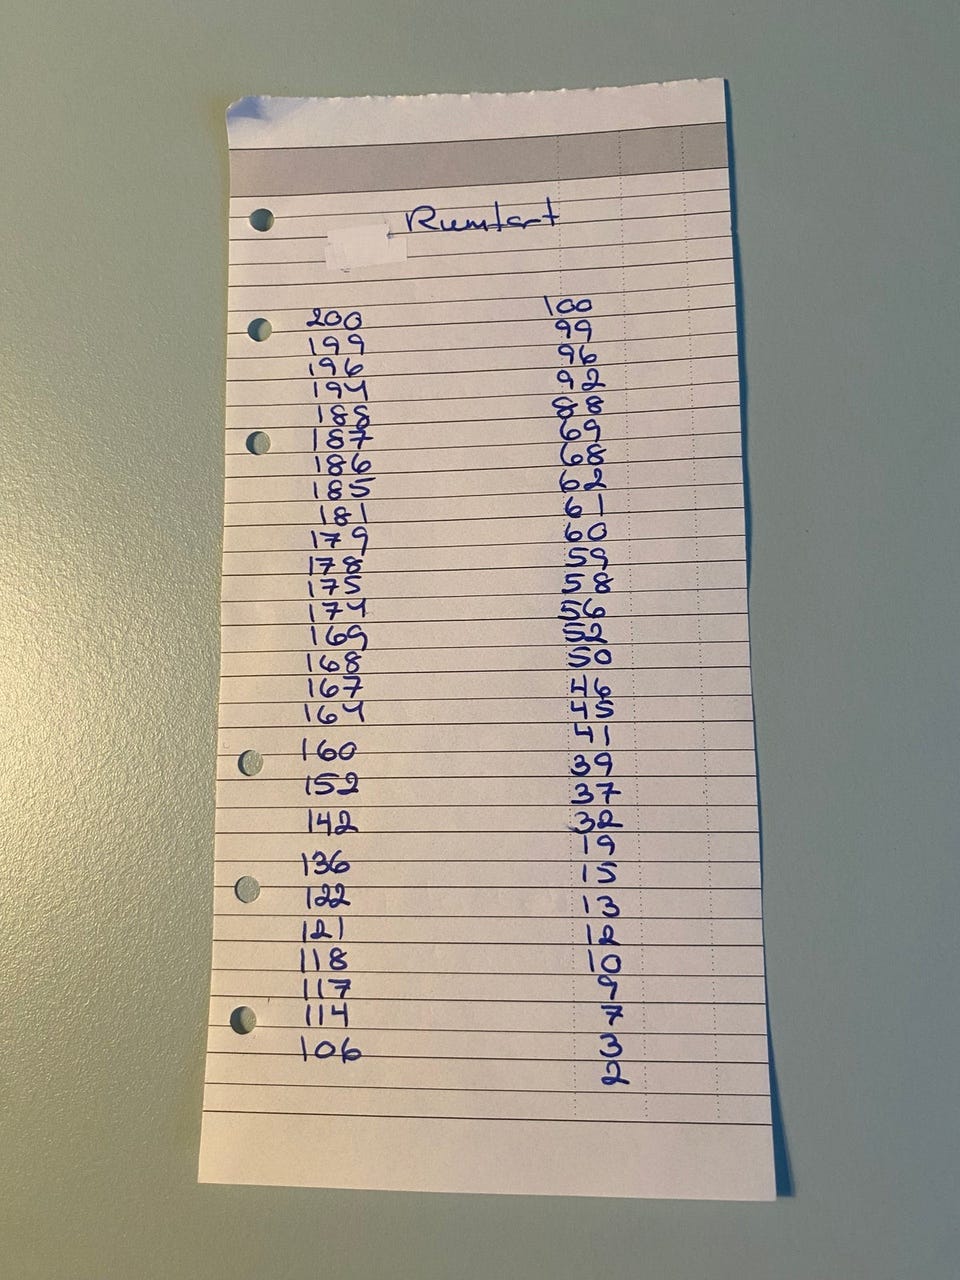 Rumtart
200
199
196
194
188
187
186
185
181
179
178
175
174
169
168
167
164
160
152
142
136
122
121
118
117
114
106
100
99
96
92
88
69
68
62
61
60
59
58
56
52
50
46
45
41
39
37
32
19
15
13
12
10
9
7
3
2